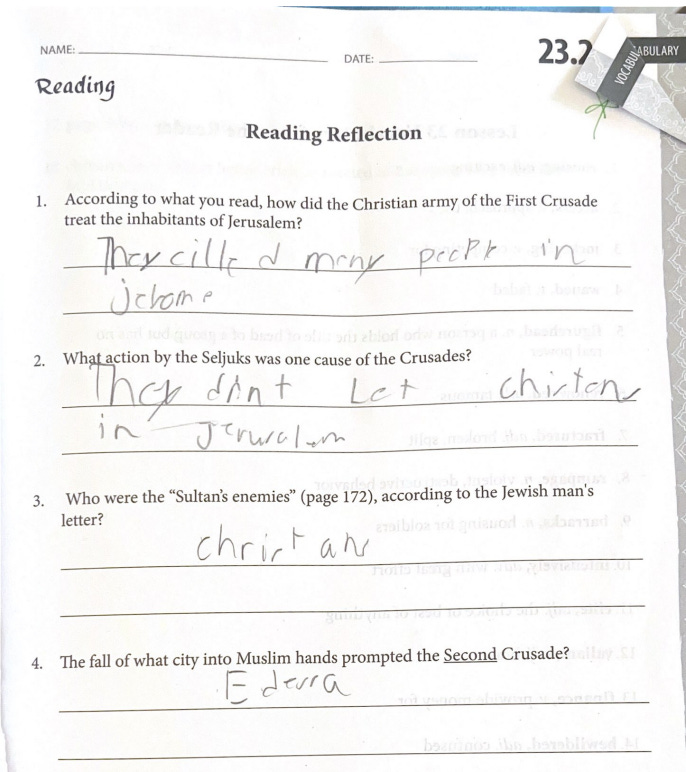 NAME: DATE: 23.2 VOCABULARY
Reading
Reading Reflection
1. According to what you read, how did the Christian army of the First Crusade
treat the inhabitants of Jerusalem?
They cilled many in
2. What action by the Seljuks was one cause of the Crusades?
They didnt Let
in Jerusalem
3. Who were the “Sultan’s enemies” (page 172), according to the Jewish man's
letter?
christans
4. The fall of what city into Muslim hands prompted the Second Crusade?
Edessa